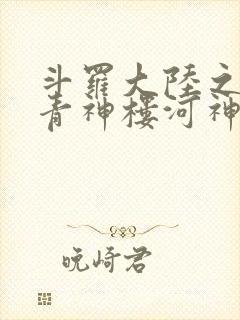 斗羅大陸之
青神樓河神
晚崎君